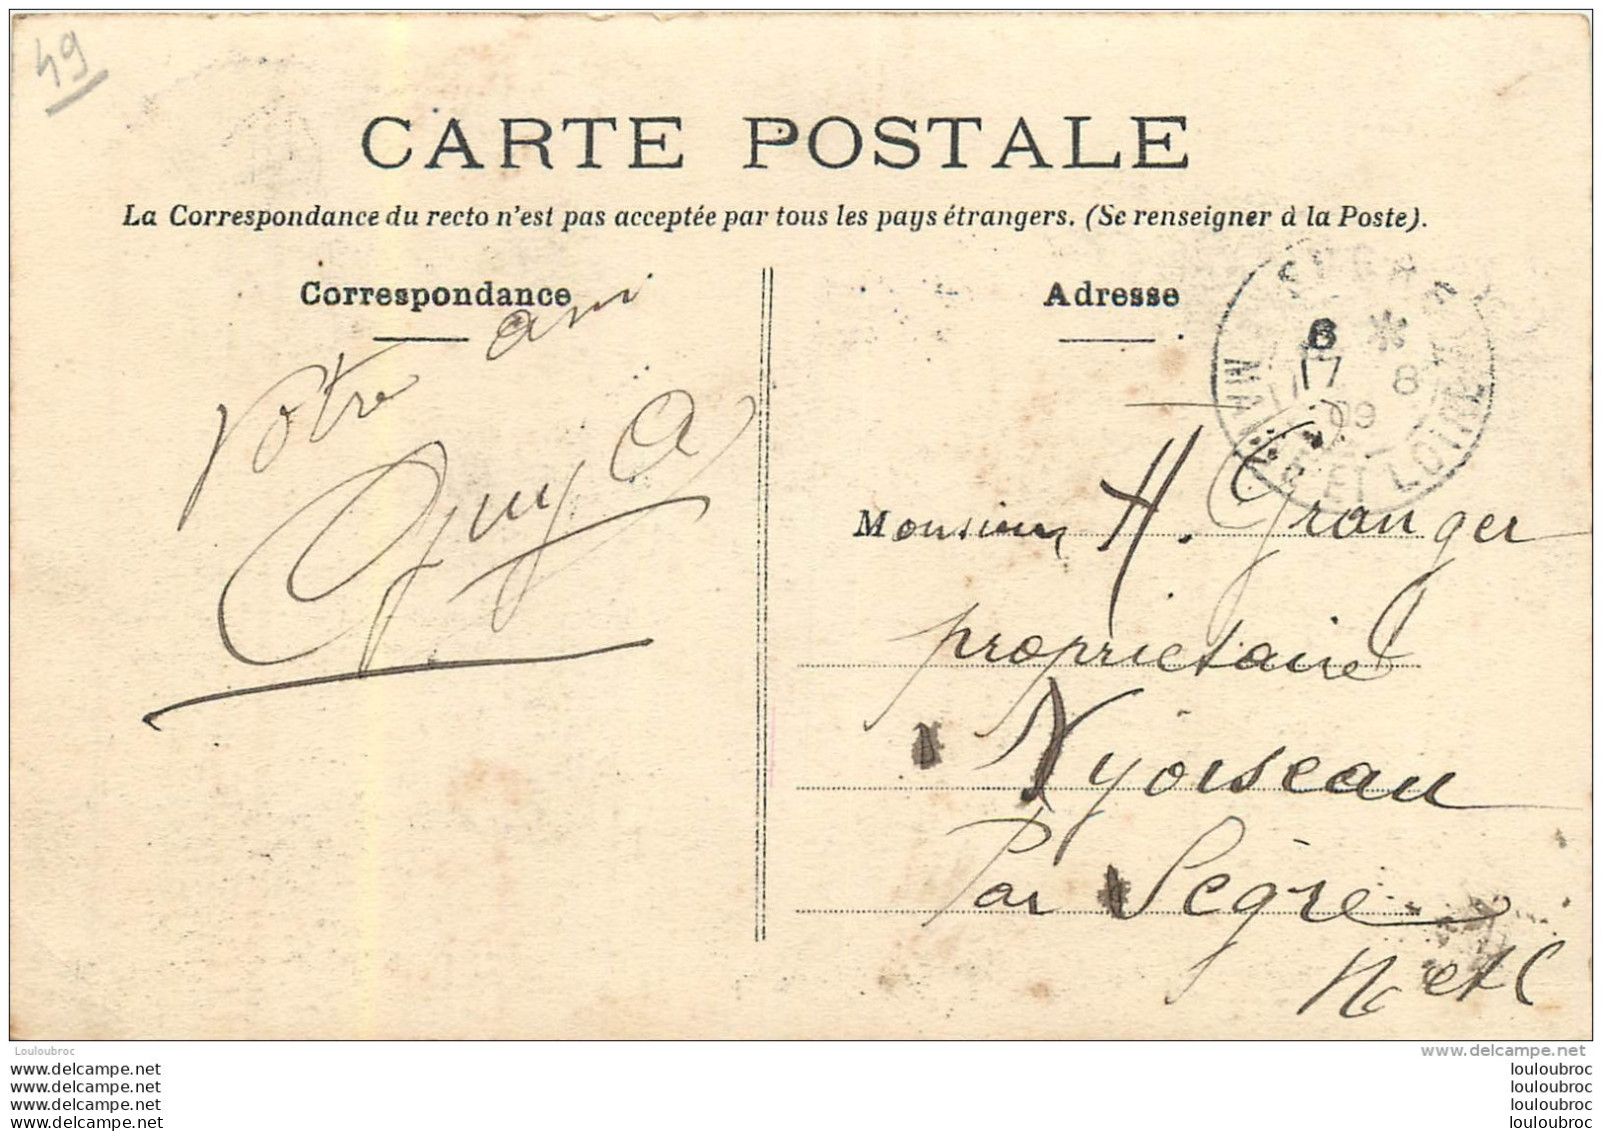 49
CARTE POSTALE
La Correspondance du recto n'est pas acceptée par tous les pays étrangers. (Se renseigner à la Poste).
Correspondance
Adresse
6 *
17 8
09
MAINE ET LOIRE
votre ami
Guy
Monsieur H. Granger
propriétaire
Nyoiseau
Par Ségré
M et L
Louloubroc
www.delcampe.net
www.delcampe.net
www.delcampe.net
www.delcampe.net
www.delcampe.net
louloubroc
louloubroc
louloubroc
louloubroc